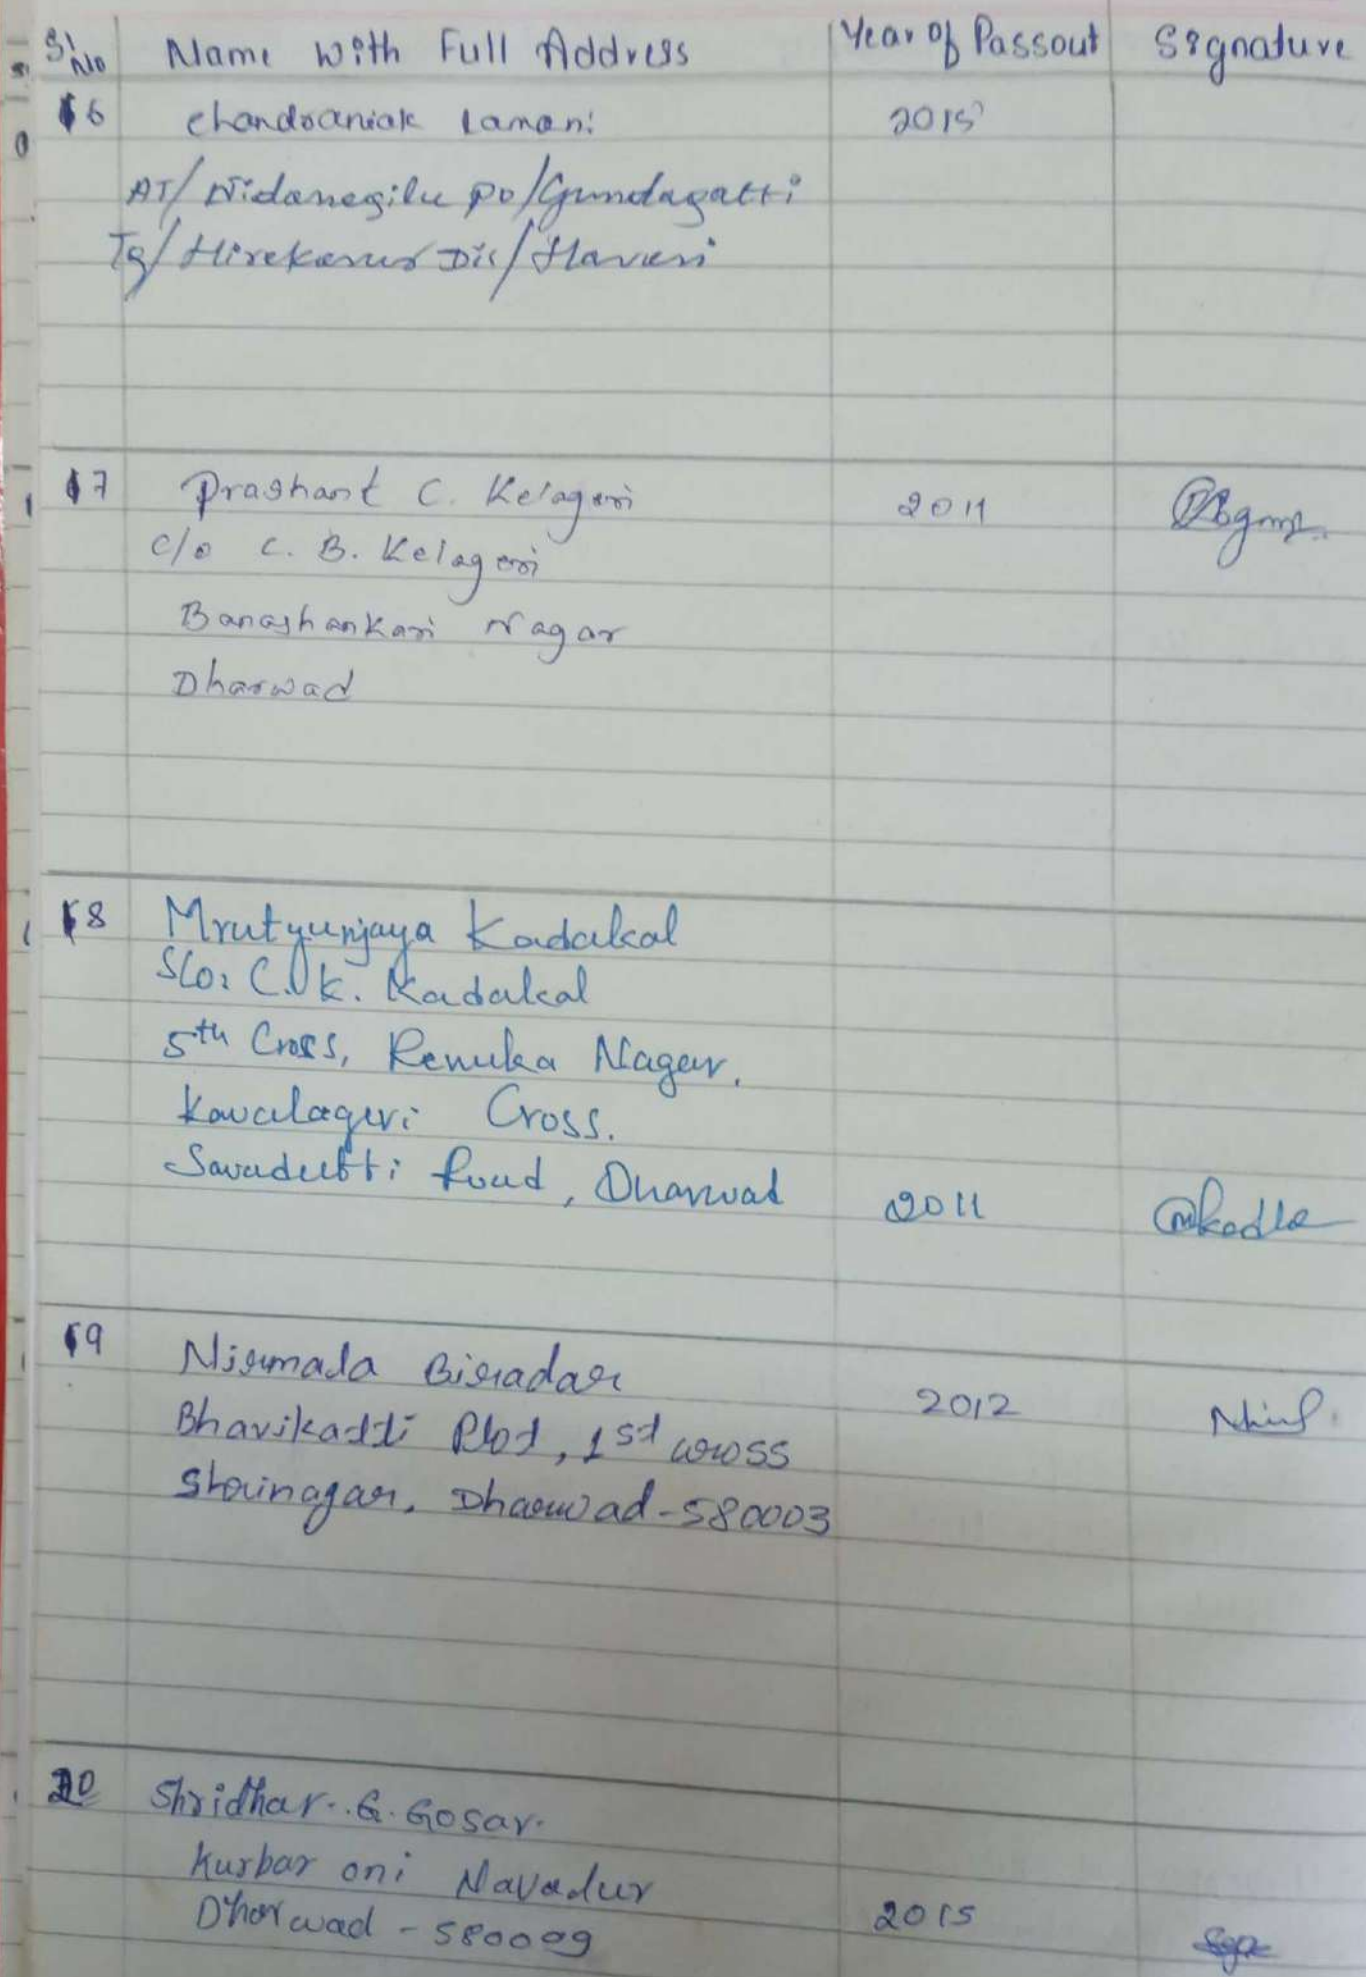 Sl No Name with Full Address Year of Passout Signature
16 chandranaik Lamani 2015
AT/ Nidanegilu po/Gundagatti
Tq/ Hirekerur Dis/ Haveri
17 Prashant C. Kelageri 2011
c/o C. B. Kelageri
Banashankari Nagar
Dharwad
18 Mrutyunjaya Kadakal
S/o: C.V.K. Kadakal
5th Cross, Renuka Nagar,
Kavalageri Cross.
Savadutti Road, Dharwad 2011
19 Nirmada Biradar 2012
Bhavikatti Plot, 1st cross
Shrinagar, Dharwad-580003
20 Shridhar. G. Gosar.
Kurbar oni Navadur
Dharwad - 580009 2015